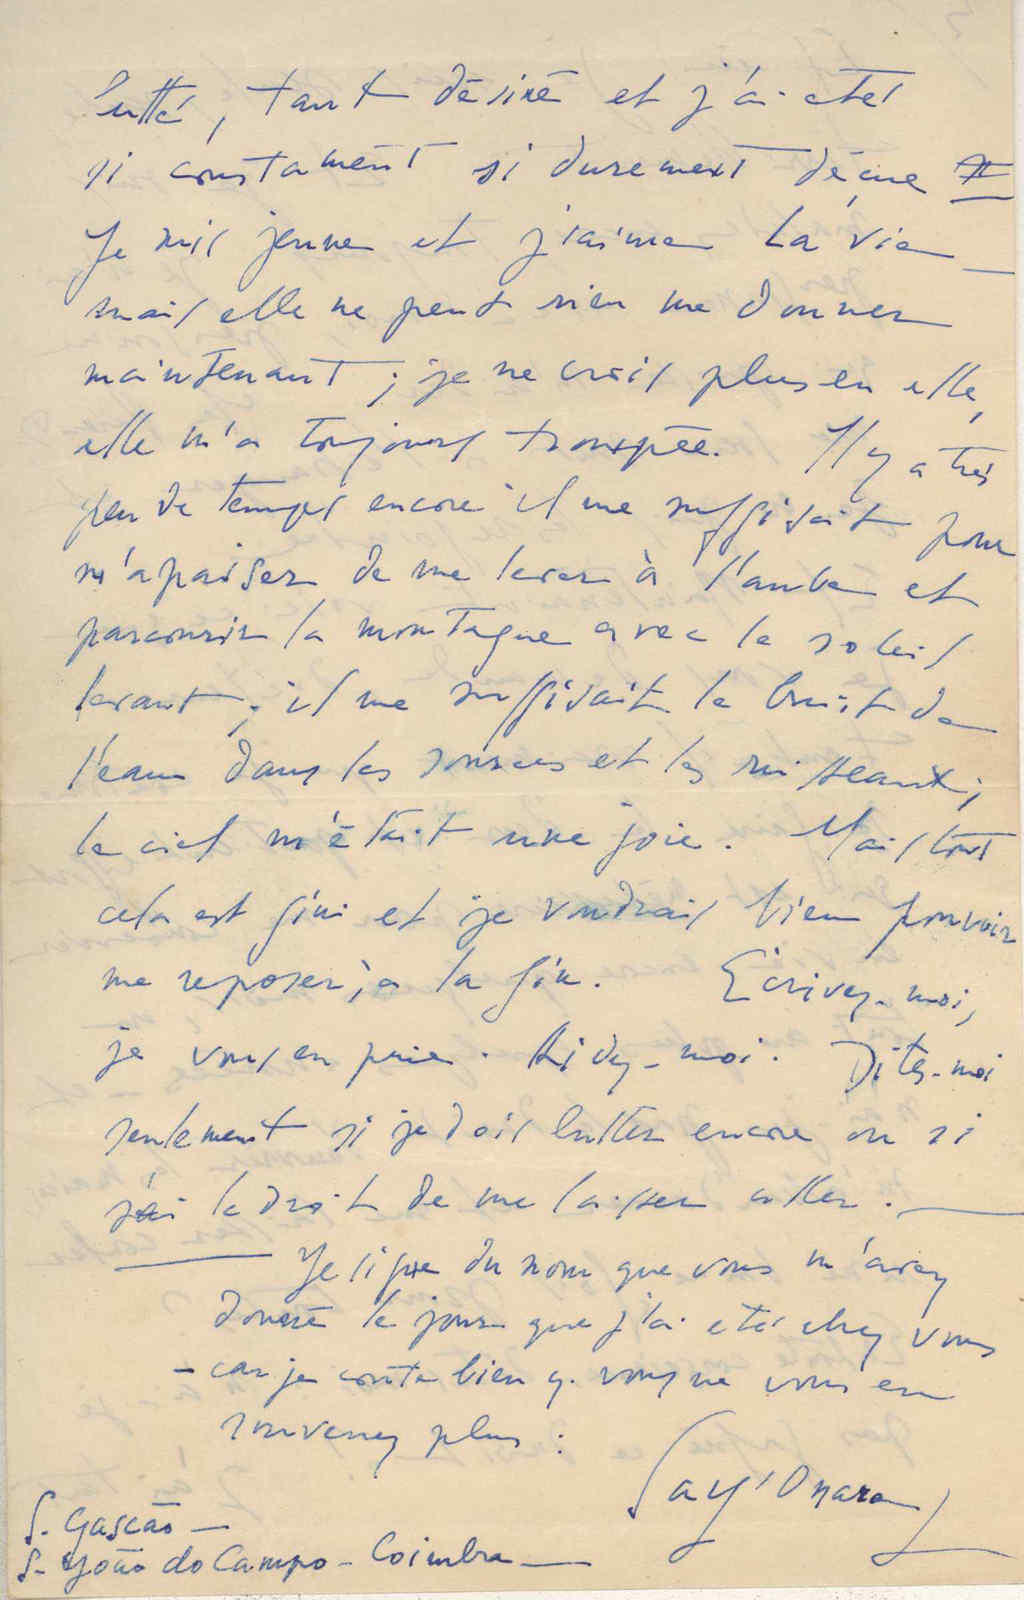 lutté, tant désiré et j'ai été
si constament si durement déçue
Je suis jeune et j'aime la vie —
mais elle ne peut rien me donner
maintenant ; je ne crois plus en elle,
elle m'a toujours trompée. Il y a très
peu de temps encore il me suffisait pour
m'apaiser de me lever à l'aube et
parcourir la montagne avec le soleil
levant ; il me suffisait le bruit de
l'eau dans les sources et les ruisseaux ;
le ciel m'était une joie. Mais tout
cela est fini et je voudrais bien pouvoir
me reposer, à la fin. Écrivez-moi,
je vous en prie. Aidez-moi. Dites-moi
seulement si je dois lutter encore ou si
j'ai le droit de me laisser aller. —
— Je signe du nom que vous m'avez
donné le jour que j'ai été chez vous
- car je conte bien q. vous ne vous en
souvenez plus :
Say'Onara
S. Gascão —
S. João do Campo - Coimbra —